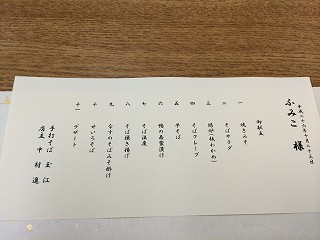 平成二十六年十月二十五日
ふみこ 様
御献立
一 焼きみそ
二 そばサラダ
三 琉砂(板わかめ)
四 そばクレープ
五 芋そば
六 鴨の南蛮漬け
七 そば豆腐
八 そば掻き揚げ
九 なすのそばみそ掛け
十 せいろそば
十一 デザート
手打そば 玉江
店主 中村進